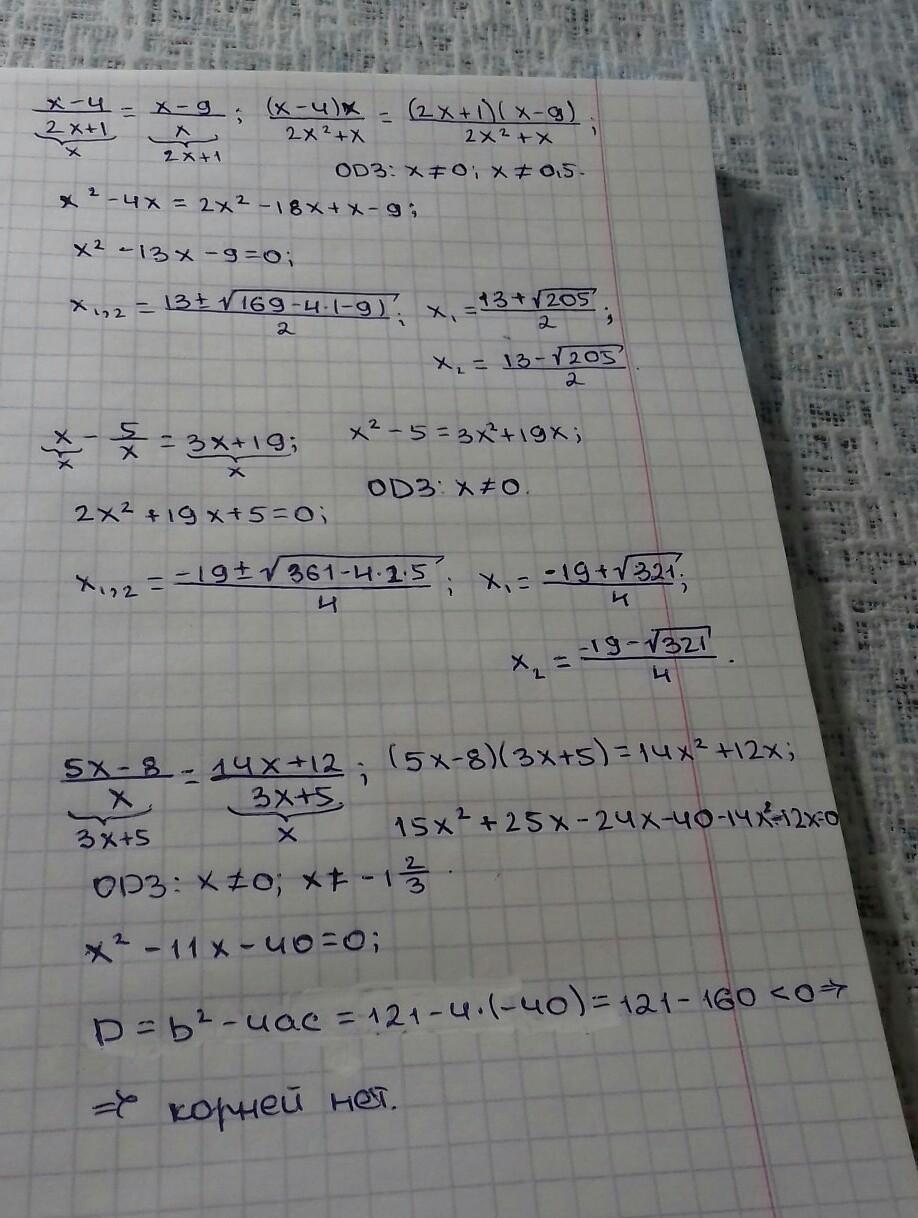 x-4/2x+1 = x-9/x; (x-4)x/2x²+x = (2x+1)(x-9)/2x²+x;
x 2x+1
ОДЗ: x≠0; x≠0,5.
x²-4x = 2x²-18x+x-9;
x²-13x-9=0;
x₁,₂ = 13±√169-4·(-9)/2; x₁ = 13+√205/2;
x₂ = 13-√205/2.
x/x - 5/x = 3x+19; x²-5=3x²+19x;
x
ОДЗ: x≠0.
2x²+19x+5=0;
x₁,₂ = -19±√361-4·2·5/4; x₁ = -19+√321/4;
x₂ = -19-√321/4.
5x-8/x = 14x+12/3x+5; (5x-8)(3x+5)=14x²+12x;
3x+5 x
15x²+25x-24x-40-14x²-12x=0
ОДЗ: x≠0; x≠-1 2/3.
x²-11x-40=0;
D=b²-4ac=121-4·(-40)=121-160<0⇒
⇒ корней нет.